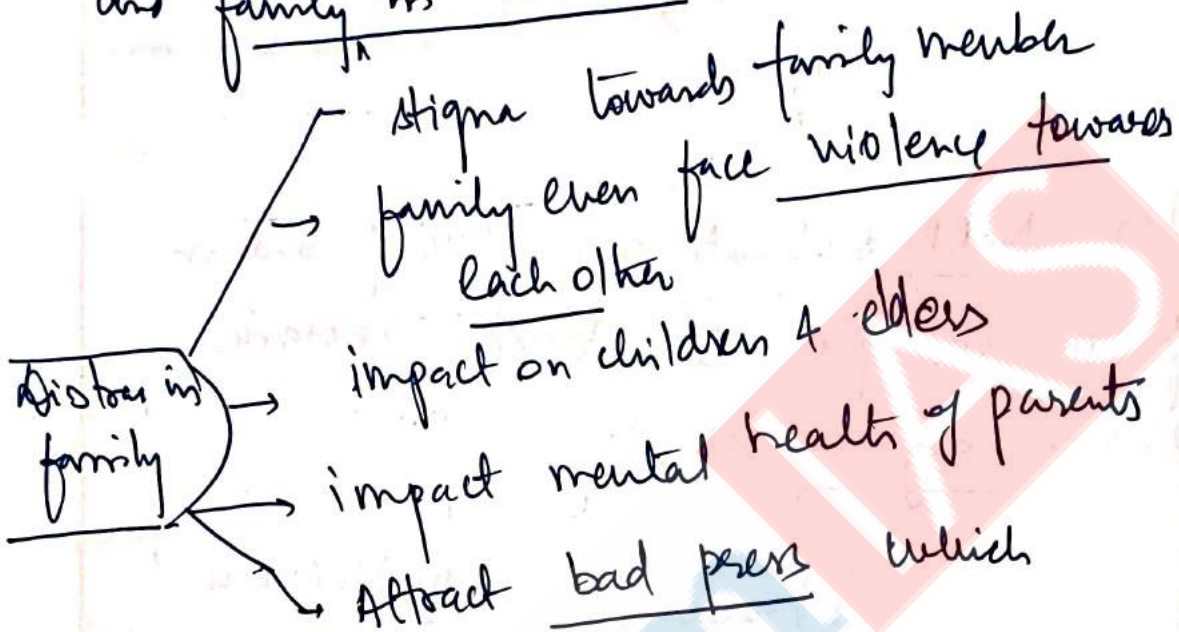 and family is
stigma towards family member
family even face violence towards
each other
impact on children & elders
Distress in
family
impact mental health of parents
Attract bad press which
IAS